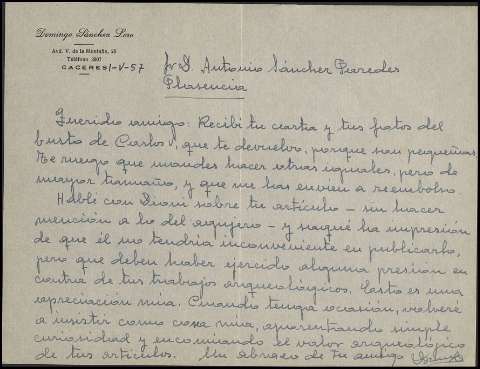 Domingo Sánchez Loro
Avd. V. de la Montaña, 28
Teléfono 1807
CACERES 1-V-57
Sr. D. Antonio Sánchez Paredes
Plasencia
Querido amigo: Recibí tu carta y tus fotos del
busto de Carlos V, que te devuelvo, porque son pequeñas.
Te ruego que mandes hacer otras iguales, pero de
mayor tamaño, y que me las envíen a reembolso.
Hablé con Dioni sobre tu artículo - sin hacer
mención a lo del agujero - y saqué la impresión
de que él no tendría inconveniente en publicarlo,
pero que deben haber ejercido alguna presión en
contra de tus trabajos arqueológicos. Esto es una
apreciación mía. Cuando tenga ocasión, volveré
a insistir como cosa mía, aparentando simple
curiosidad y encomiando el valor arqueológico
de tus artículos. Un abrazo de tu amigo